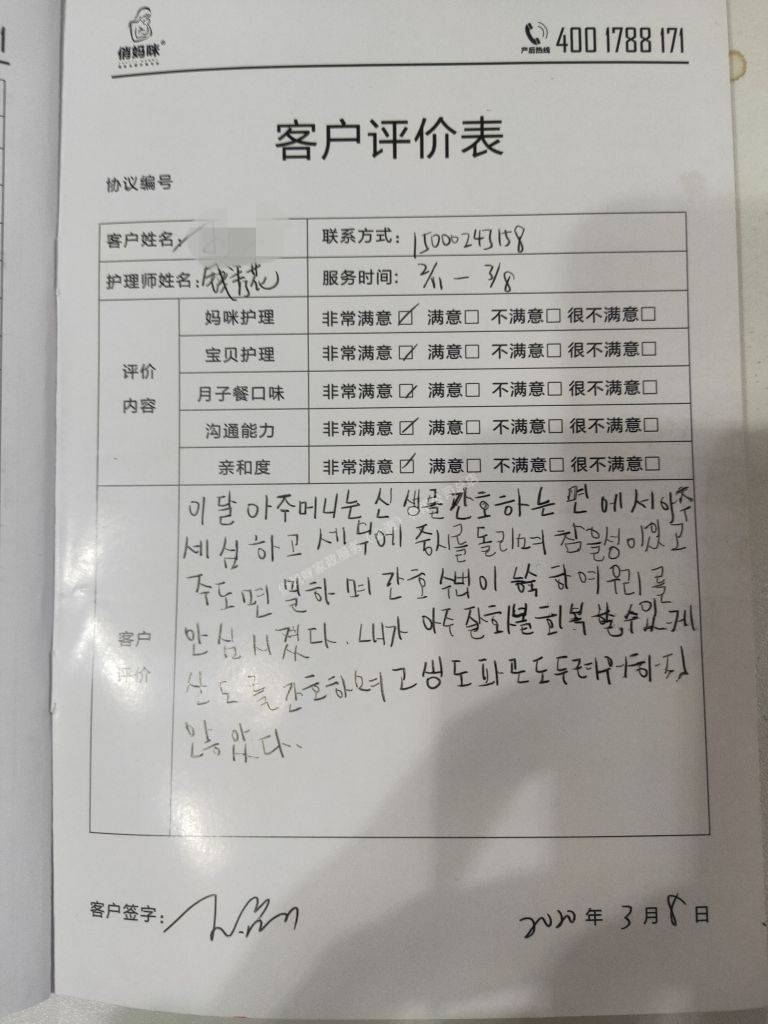 俏妈咪
产后热线 400 1788 171
客户评价表
协议编号
客户姓名: 联系方式: 15000243158
护理师姓名: 钱秀花 服务时间: 2/11 — 3/8
评价内容
妈咪护理 非常满意☑ 满意☐ 不满意☐ 很不满意☐
宝贝护理 非常满意☑ 满意☐ 不满意☐ 很不满意☐
月子餐口味 非常满意☑ 满意☐ 不满意☐ 很不满意☐
沟通能力 非常满意☑ 满意☐ 不满意☐ 很不满意☐
亲和度 非常满意☑ 满意☐ 不满意☐ 很不满意☐
客户评价
이 달 아주머니는 신생를 간호하는 면에서 아주
세심하고 세부에 중시를 돌리며 참을성이 있고
주도면밀하며 간호 수법이 하여 우리를
안심시켰다. 내가 아주 잘 회복할 수 있게
산도를 간호하며 고생도 파곤도 두려워하지
않았다.
客户签字:
2020 年 3 月 8 日